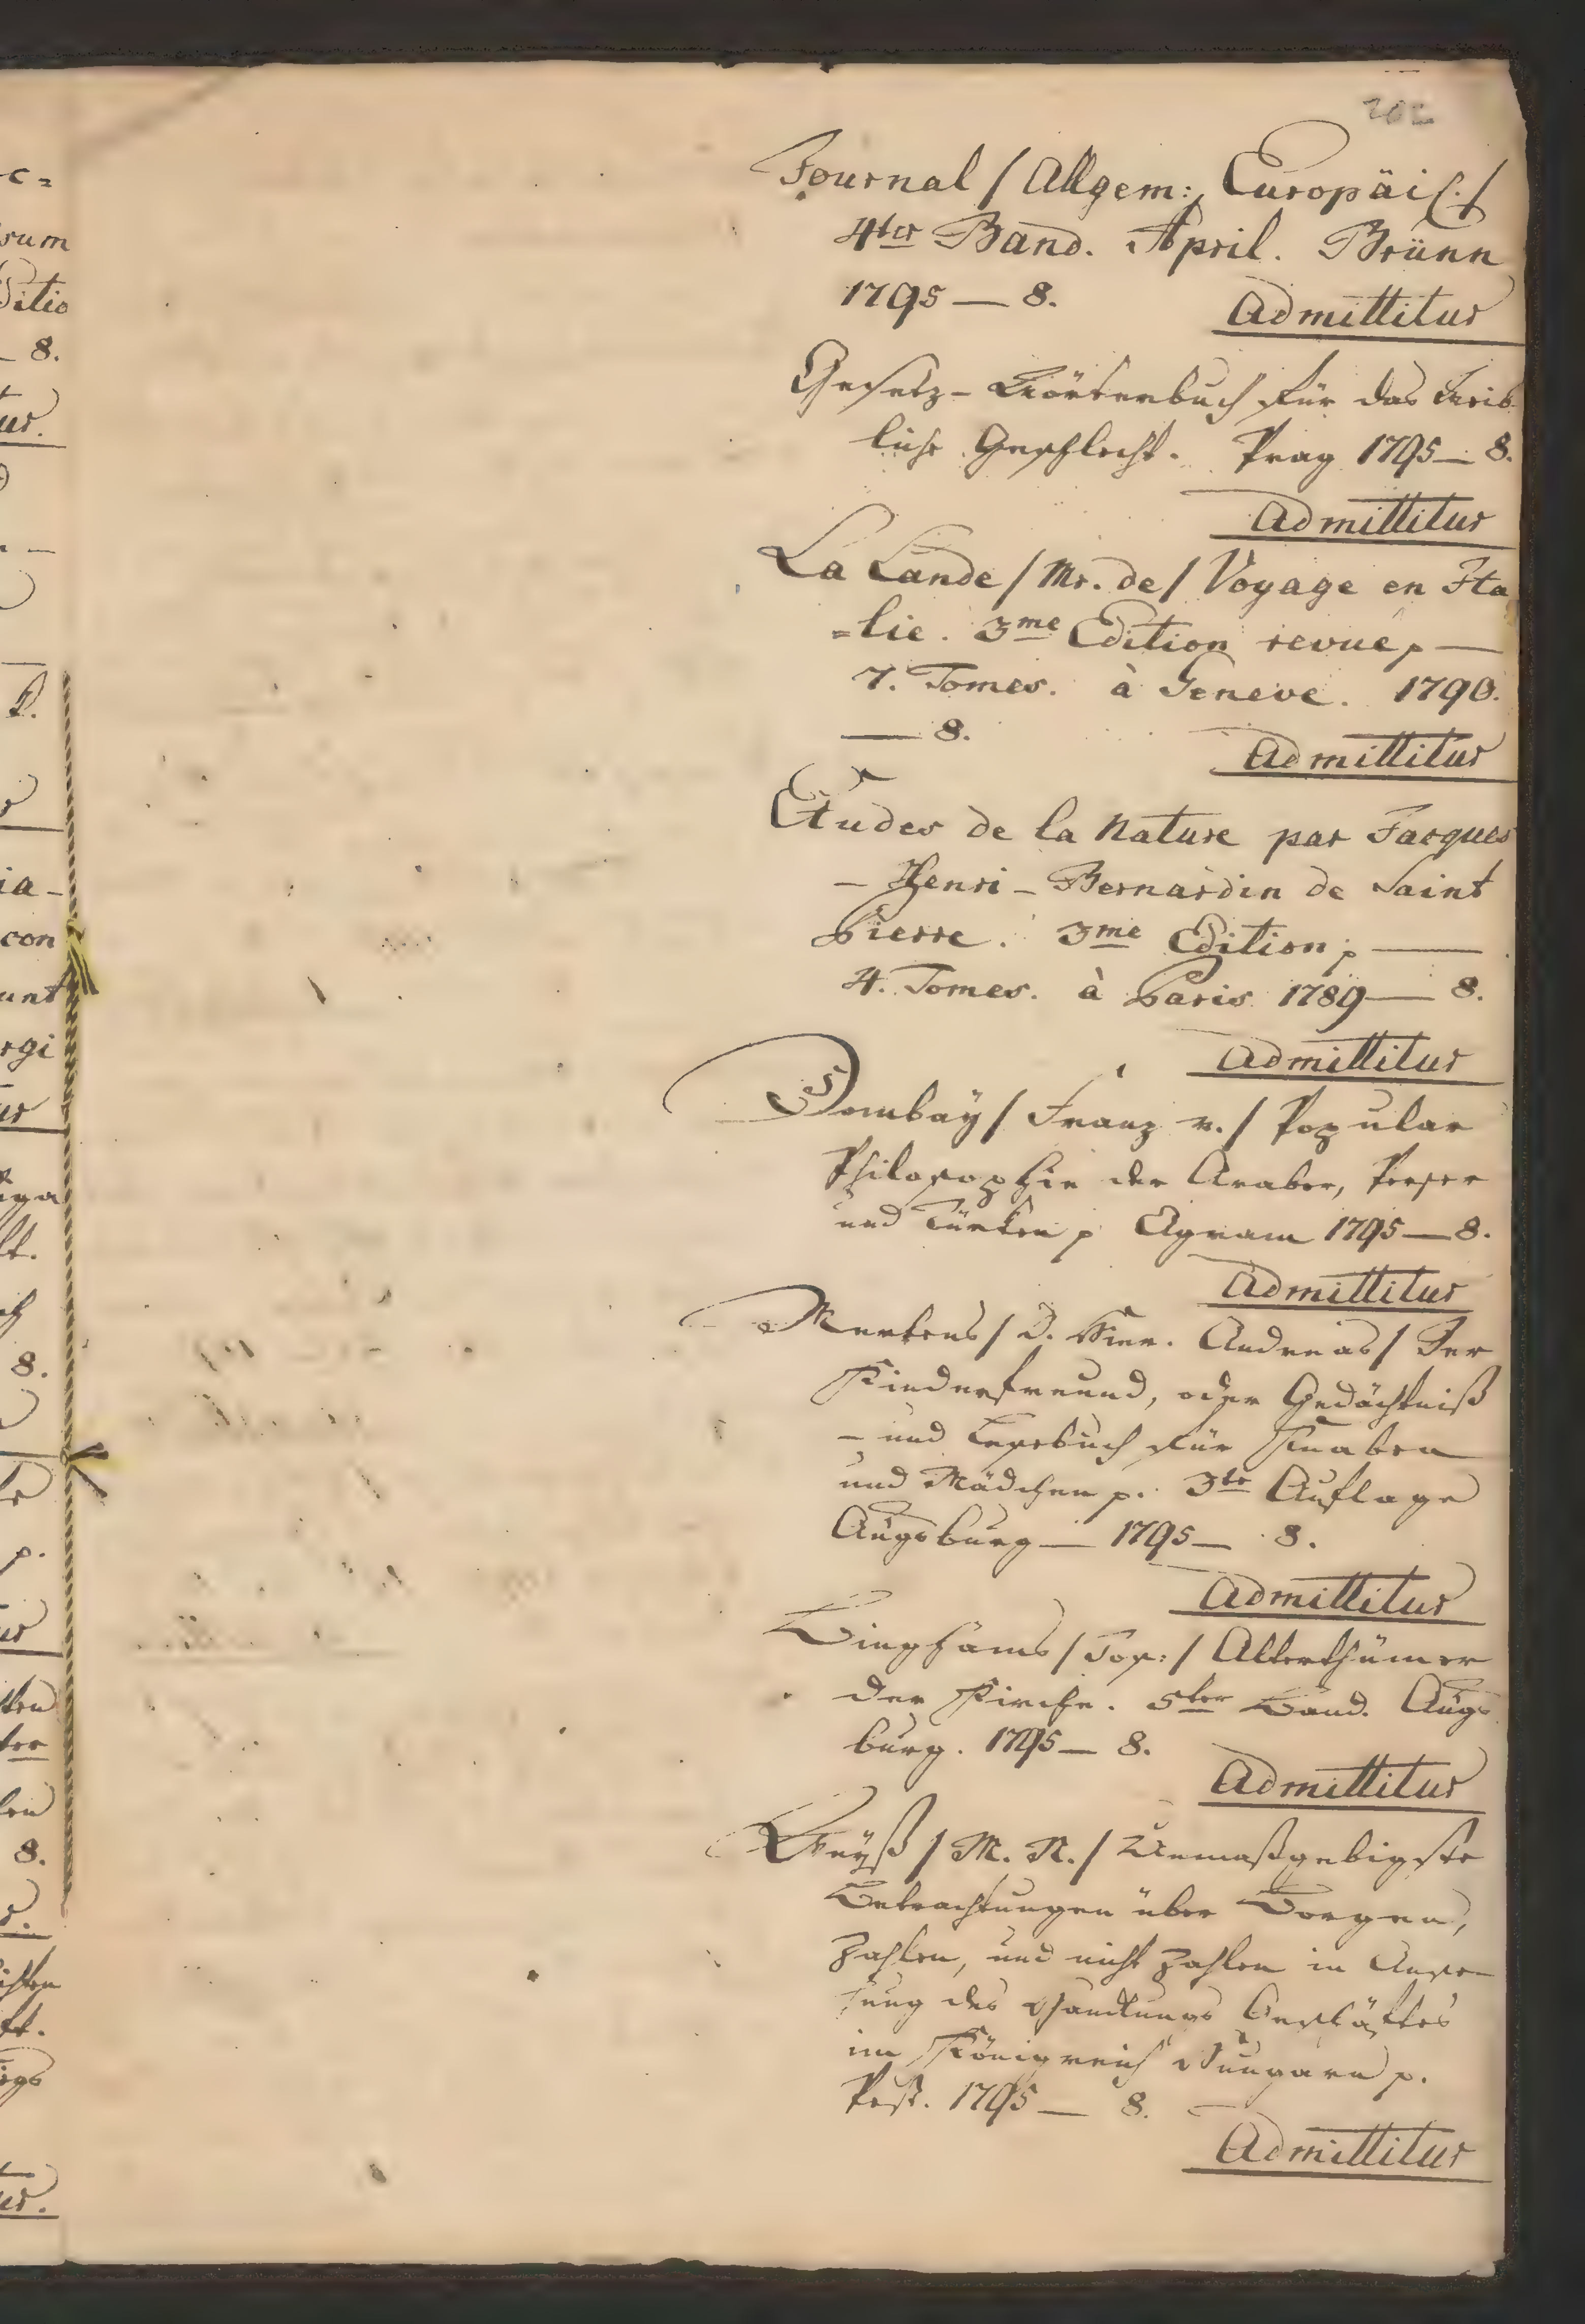 Journal / Allgem: Europäis. /
4ter Band. April. Brünn
1795 — 8. Admittitur
Gesetz-Wörterbuch für das weib
liche Geschlecht. Prag 1795 — 8.
Admittitur
La Lande / Mr. de / Voyage en Ita
=lie. 3me Edition revue p —
7. Tomes. à Geneve. 1790.
— 8. Admittitur
Etudes de la Nature par Jacques
– Henri – Bernardin de Saint
Pierre. 3me Edition p —
4. Tomes. à Paris 1789 — 8.
Admittitur
Dombaÿ / Franz v. / Popular
Philosophie der Araber, Perser
und Türken p Agram 1795 — 8.
Admittitur
Mertens / D. Hier. Andreas / Der
Kinderfreund, oder Gedächtniß
– und Lesebuch für Knaben
und Mädchen p. 3te Auflage
Augsburg — 1795 — 8.
Admittitur
Binghams / Jos: / Alterthümer
der Kirche. 5ter Band. Augs
burg. 1795 — 8.
Admittitur
Weÿß / M. N. / Unmaßgebigste
Betrachtungen über Borgen,
Zahlen, und nicht Zahlen in Anse-
hung des Handlungs Geschäftes
im Königreich Hungarn p.
Pest. 1795 — 8.
Admittitur